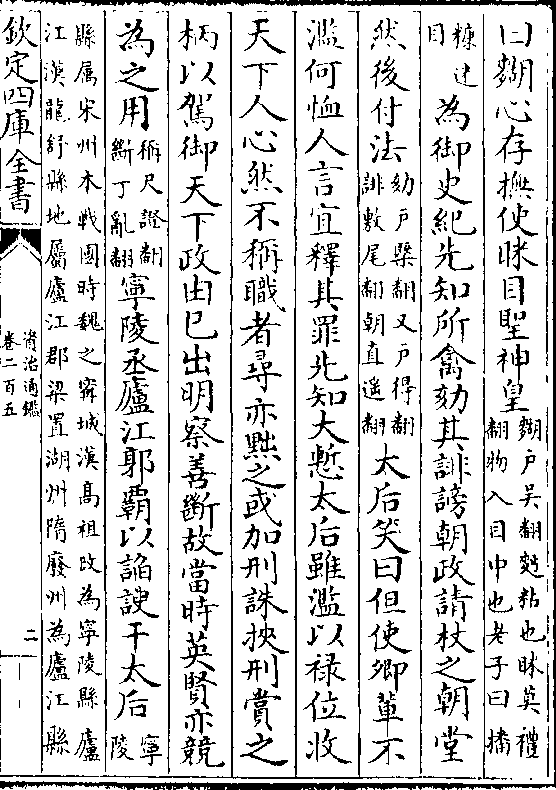 曰麹心存撫使眯目聖神皇麹户吴翻麹粘也眯莫禮
翻物入目中也老子曰播
糠迷
目為御史紀先知所禽劾其誹謗朝政請杖之朝堂
然後付法劾户槩翻又户得翻
誹敷尾翻朝直遥翻太后笑曰但使卿輩不
濫何恤人言宜釋其罪先知大慙太后雖濫以禄位收
天下人心然不稱職者尋亦黜之或加刑誅挾刑賞之
柄以駕御天下政由已出明察善斷故當時英賢亦競
為之用稱尺證翻
斷丁亂翻寧陵丞廬江郭霸以諂諛干太后寧
陵
縣属宋州本戰國時魏之甯城漢高祖改為寧陵縣廬
江漢龍舒縣地屬廬江郡梁置湖州隋廢州為廬江縣
欽定四庫全書
資治通鑑
卷二百五
二